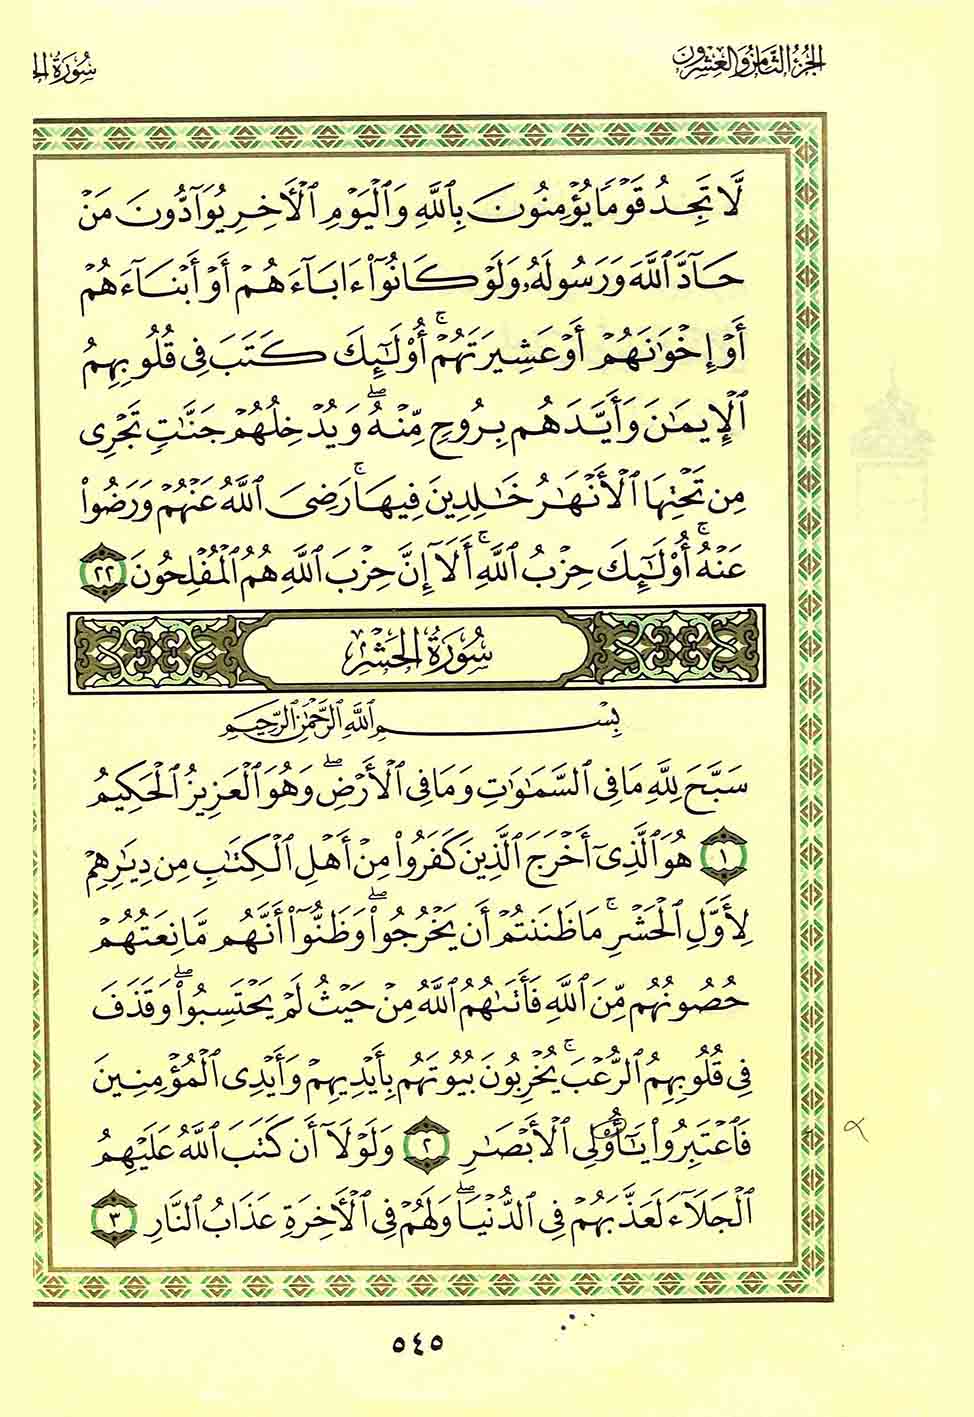 الجزء الثامن والعشرون
سورة
لَّا تَجِدُ قَوْمًا يُؤْمِنُونَ بِٱللَّهِ وَٱلْيَوْمِ ٱلْأَخِرِ يُوَآدُّونَ مَنْ
حَآدَّ ٱللَّهَ وَرَسُولَهُۥ وَلَوْ كَانُوٓا۟ ءَابَآءَهُمْ أَوْ أَبْنَآءَهُمْ
أَوْ إِخْوَٰنَهُمْ أَوْ عَشِيرَتَهُمْ ۚ أُو۟لَـٰٓئِكَ كَتَبَ فِى قُلُوبِهِمُ
ٱلْإِيمَـٰنَ وَأَيَّدَهُم بِرُوحٍ مِّنْهُ ۖ وَيُدْخِلُهُمْ جَنَّـٰتٍ تَجْرِى
مِن تَحْتِهَا ٱلْأَنْهَـٰرُ خَـٰلِدِينَ فِيهَا ۚ رَضِىَ ٱللَّهُ عَنْهُمْ وَرَضُوا۟
عَنْهُ ۚ أُو۟لَـٰٓئِكَ حِزْبُ ٱللَّهِ ۚ أَلَآ إِنَّ حِزْبَ ٱللَّهِ هُمُ ٱلْمُفْلِحُونَ ٢٢
سُورَةُ الحَشْرِ
بِسْمِ ٱللَّهِ ٱلرَّحْمَـٰنِ ٱلرَّحِيمِ
سَبَّحَ لِلَّهِ مَا فِى ٱلسَّمَـٰوَٰتِ وَمَا فِى ٱلْأَرْضِ ۖ وَهُوَ ٱلْعَزِيزُ ٱلْحَكِيمُ
١ هُوَ ٱلَّذِىٓ أَخْرَجَ ٱلَّذِينَ كَفَرُوا۟ مِنْ أَهْلِ ٱلْكِتَـٰبِ مِن دِيَـٰرِهِمْ
لِأَوَّلِ ٱلْحَشْرِ ۚ مَا ظَنَنتُمْ أَن يَخْرُجُوا۟ ۖ وَظَنُّوٓا۟ أَنَّهُم مَّانِعَتُهُمْ
حُصُونُهُم مِّنَ ٱللَّهِ فَأَتَىٰهُمُ ٱللَّهُ مِنْ حَيْثُ لَمْ يَحْتَسِبُوا۟ ۖ وَقَذَفَ
فِى قُلُوبِهِمُ ٱلرُّعْبَ ۚ يُخْرِبُونَ بُيُوتَهُم بِأَيْدِيهِمْ وَأَيْدِى ٱلْمُؤْمِنِينَ
فَٱعْتَبِرُوا۟ يَـٰٓأُو۟لِى ٱلْأَبْصَـٰرِ ٢ وَلَوْلَآ أَن كَتَبَ ٱللَّهُ عَلَيْهِمُ
ٱلْجَلَآءَ لَعَذَّبَهُمْ فِى ٱلدُّنْيَا ۖ وَلَهُمْ فِى ٱلْأَخِرَةِ عَذَابُ ٱلنَّارِ ٣
٥٤٥